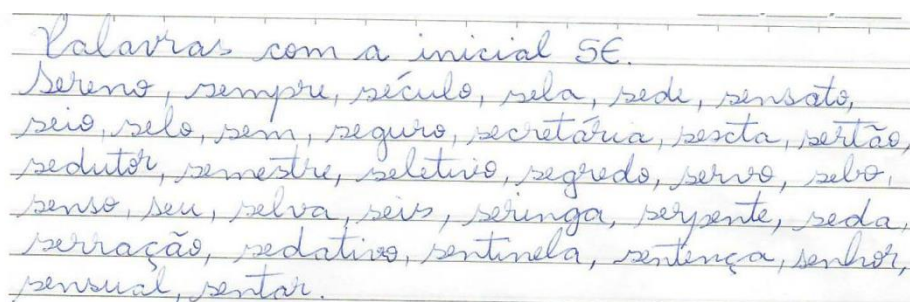 Palavras com a inicial SE.
Sereno, sempre, século, sela, sede, sensato,
seio, selo, sem, seguro, secretária, sexta, sertão,
sedutor, semestre, seletivo, segredo, servo, sebo,
senso, seu, selva, seis, seringa, serpente, seda,
serração, sedativo, sentinela, sentença, senhor,
sensual, sentar.